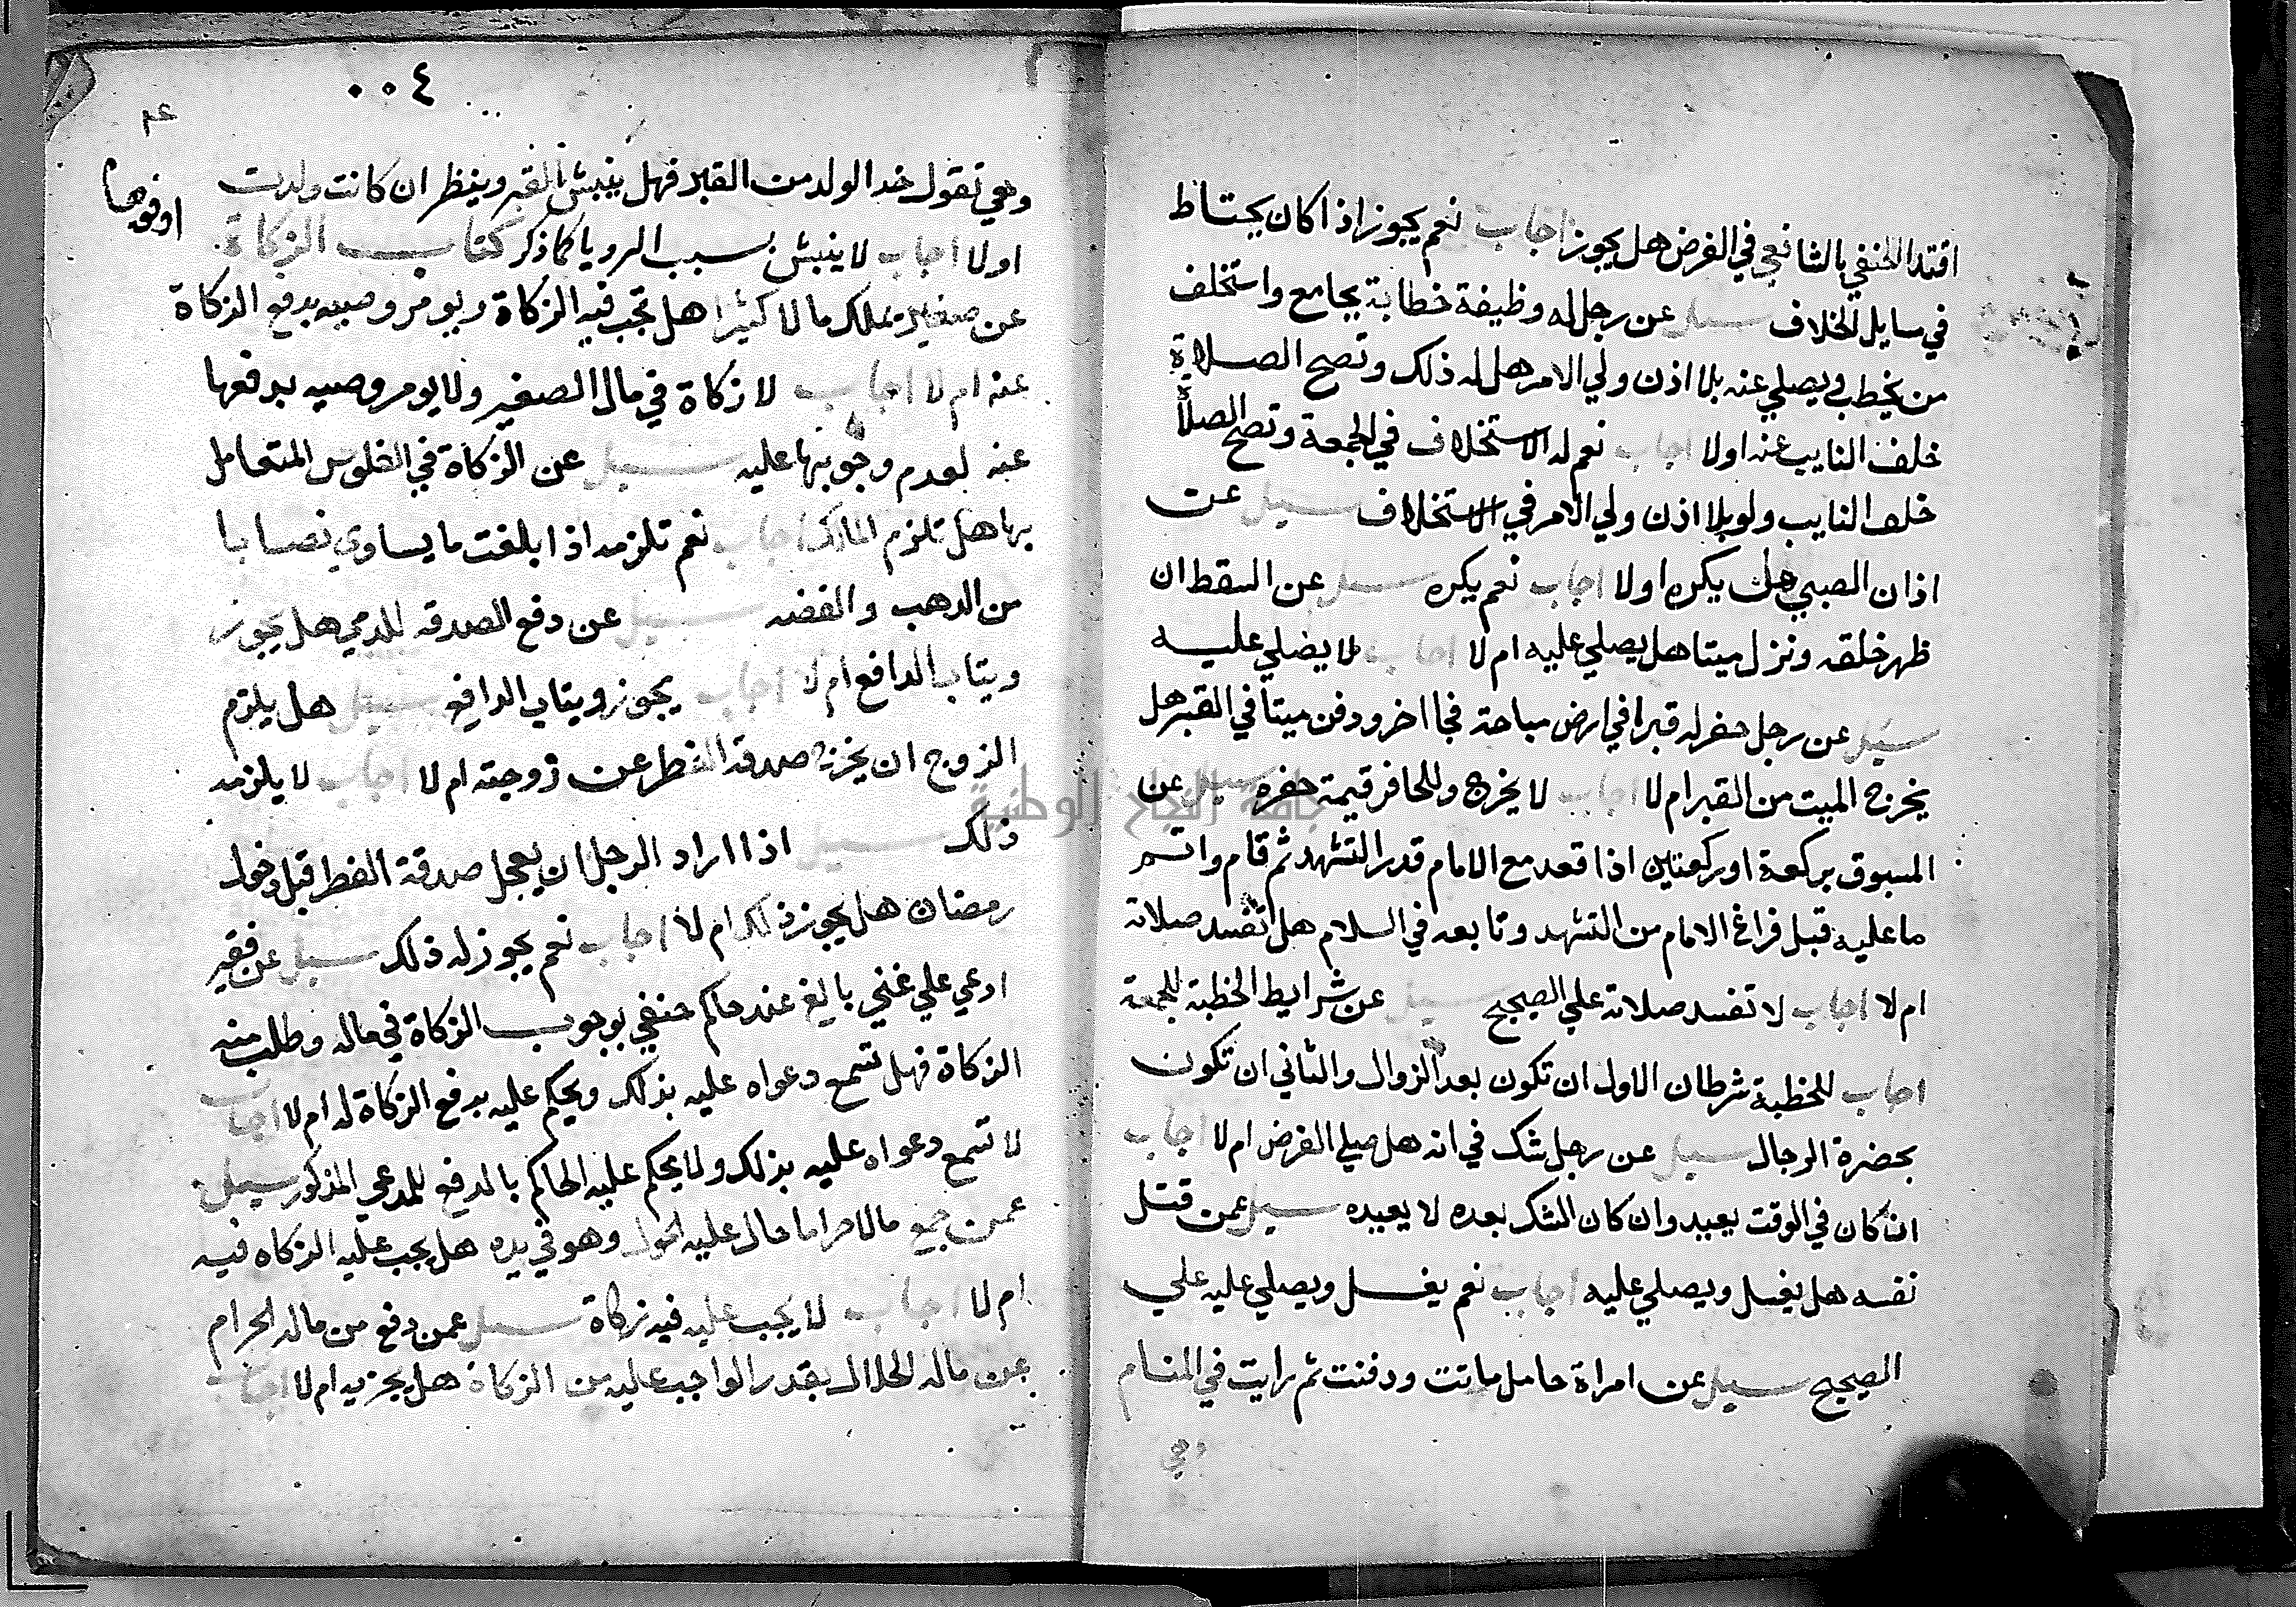 اقتدا الحنفي بالشافعي في الفرض هل يجوز اجاب نعم يجوز اذا كان يحتاط
في سايل الخلاف سيل عن رجل له وظيفة خطابة بجامع واستخلف
من يخطب ويصلي عنه بلا اذن ولي الامر هل له ذلك وتصح الصلاة
خلف النايب عنه اولا اجاب نعم له الاستخلاف في الجمعة وتصح الصلاة
خلف النايب ولو بلا اذن ولي الامر في الاستخلاف سيل عن
اذان الصبي هل يكره اولا اجاب نعم يكره سيل عن السقط ان
ظهر خلقه ونزل ميتا هل يصلي عليه ام لا اجاب لا يصلي عليه
سيل عن رجل حفر له قبرا في ارض مباحة فجا اخر ودفن ميتا في القبر هل
يخرج الميت من القبر ام لا اجاب لا يخرج وللحافر قيمة حفره سيل عن
المسبوق بركعة او ركعتين اذا قعد مع الامام قدر التشهد ثم قام واتم
ما عليه قبل فراغ الامام من التشهد وتابعه في السلام هل تفسد صلاته
ام لا اجاب لا تفسد صلاته علي الصحيح سيل عن شرايط الخطبة للجمعة
اجاب للخطبة شرطان الاول ان تكون بعد الزوال والثاني ان تكون
بحضرة الرجال سيل عن رجل شك في انه هل صلي الفرض ام لا اجاب
ان كان في الوقت يعيد وان كان الشك بعده لا يعيده سيل عمن قتل
نفسه هل يغسل ويصلي عليه اجاب نعم يغسل ويصلي عليه علي
الصحيح سيل عن امراة حامل ماتت ودفنت ثم رايت في المنام
وهي
٠٠٤
وهي تقول خدا الولد من القبر فهل ينبش القبر وينظر ان كانت ولدت
اولا اجاب لا ينبش بسبب الرويا كما ذكر كتاب الزكاة
عن صغير يملك مالا كثيرا هل تجب فيه الزكاة ويومر وصيه بدفع الزكاة
عنه ام لا اجاب لا زكاة في مال الصغير ولا يومر وصيه بدفعها
عنه لعدم وجوبها عليه سيل عن الزكاة في الفلوس المتعامل
بها هل تلزم المالك اجاب نعم تلزمه اذا بلغت ما يساوي نصابا
من الدهب والفضه سيل عن دفع الصدقه للدمي هل يجوز
ويتاب الدافع ام لا اجاب يجوز ويتاب الدافع سيل هل يلزم
الزوج ان يخرج صدقة الفطر عن زوجته ام لا اجاب لا يلزمه
ذلك سيل اذا اراد الرجل ان يعجل صدقة الفطر قبل دخول
رمضان هل يجوز ذلك ام لا اجاب نعم يجوز له ذلك سيل عن فقير
ادعي علي غني بالغ عند حاكم حنفي بوجوب الزكاة في ماله وطلب منه
الزكاة فهل تسمع دعواه عليه بذلك ويحكم عليه بدفع الزكاة له ام لا اجاب
لا تسمع دعواه عليه بذلك ولا يحكم عليه الحاكم بالدفع للمدعي المذكور سيل
عمن جمع مالا حراما حال عليه الحول وهو في يده هل يجب عليه الزكاه فيه
ام لا اجاب لا يجب عليه فيه زكاة سيل عمن دفع من ماله الحرام
عن ماله الحلال بقدر الواجب عليه من الزكاة هل يجزيه ام لا اجاب
جامعة النجاح الوطنية